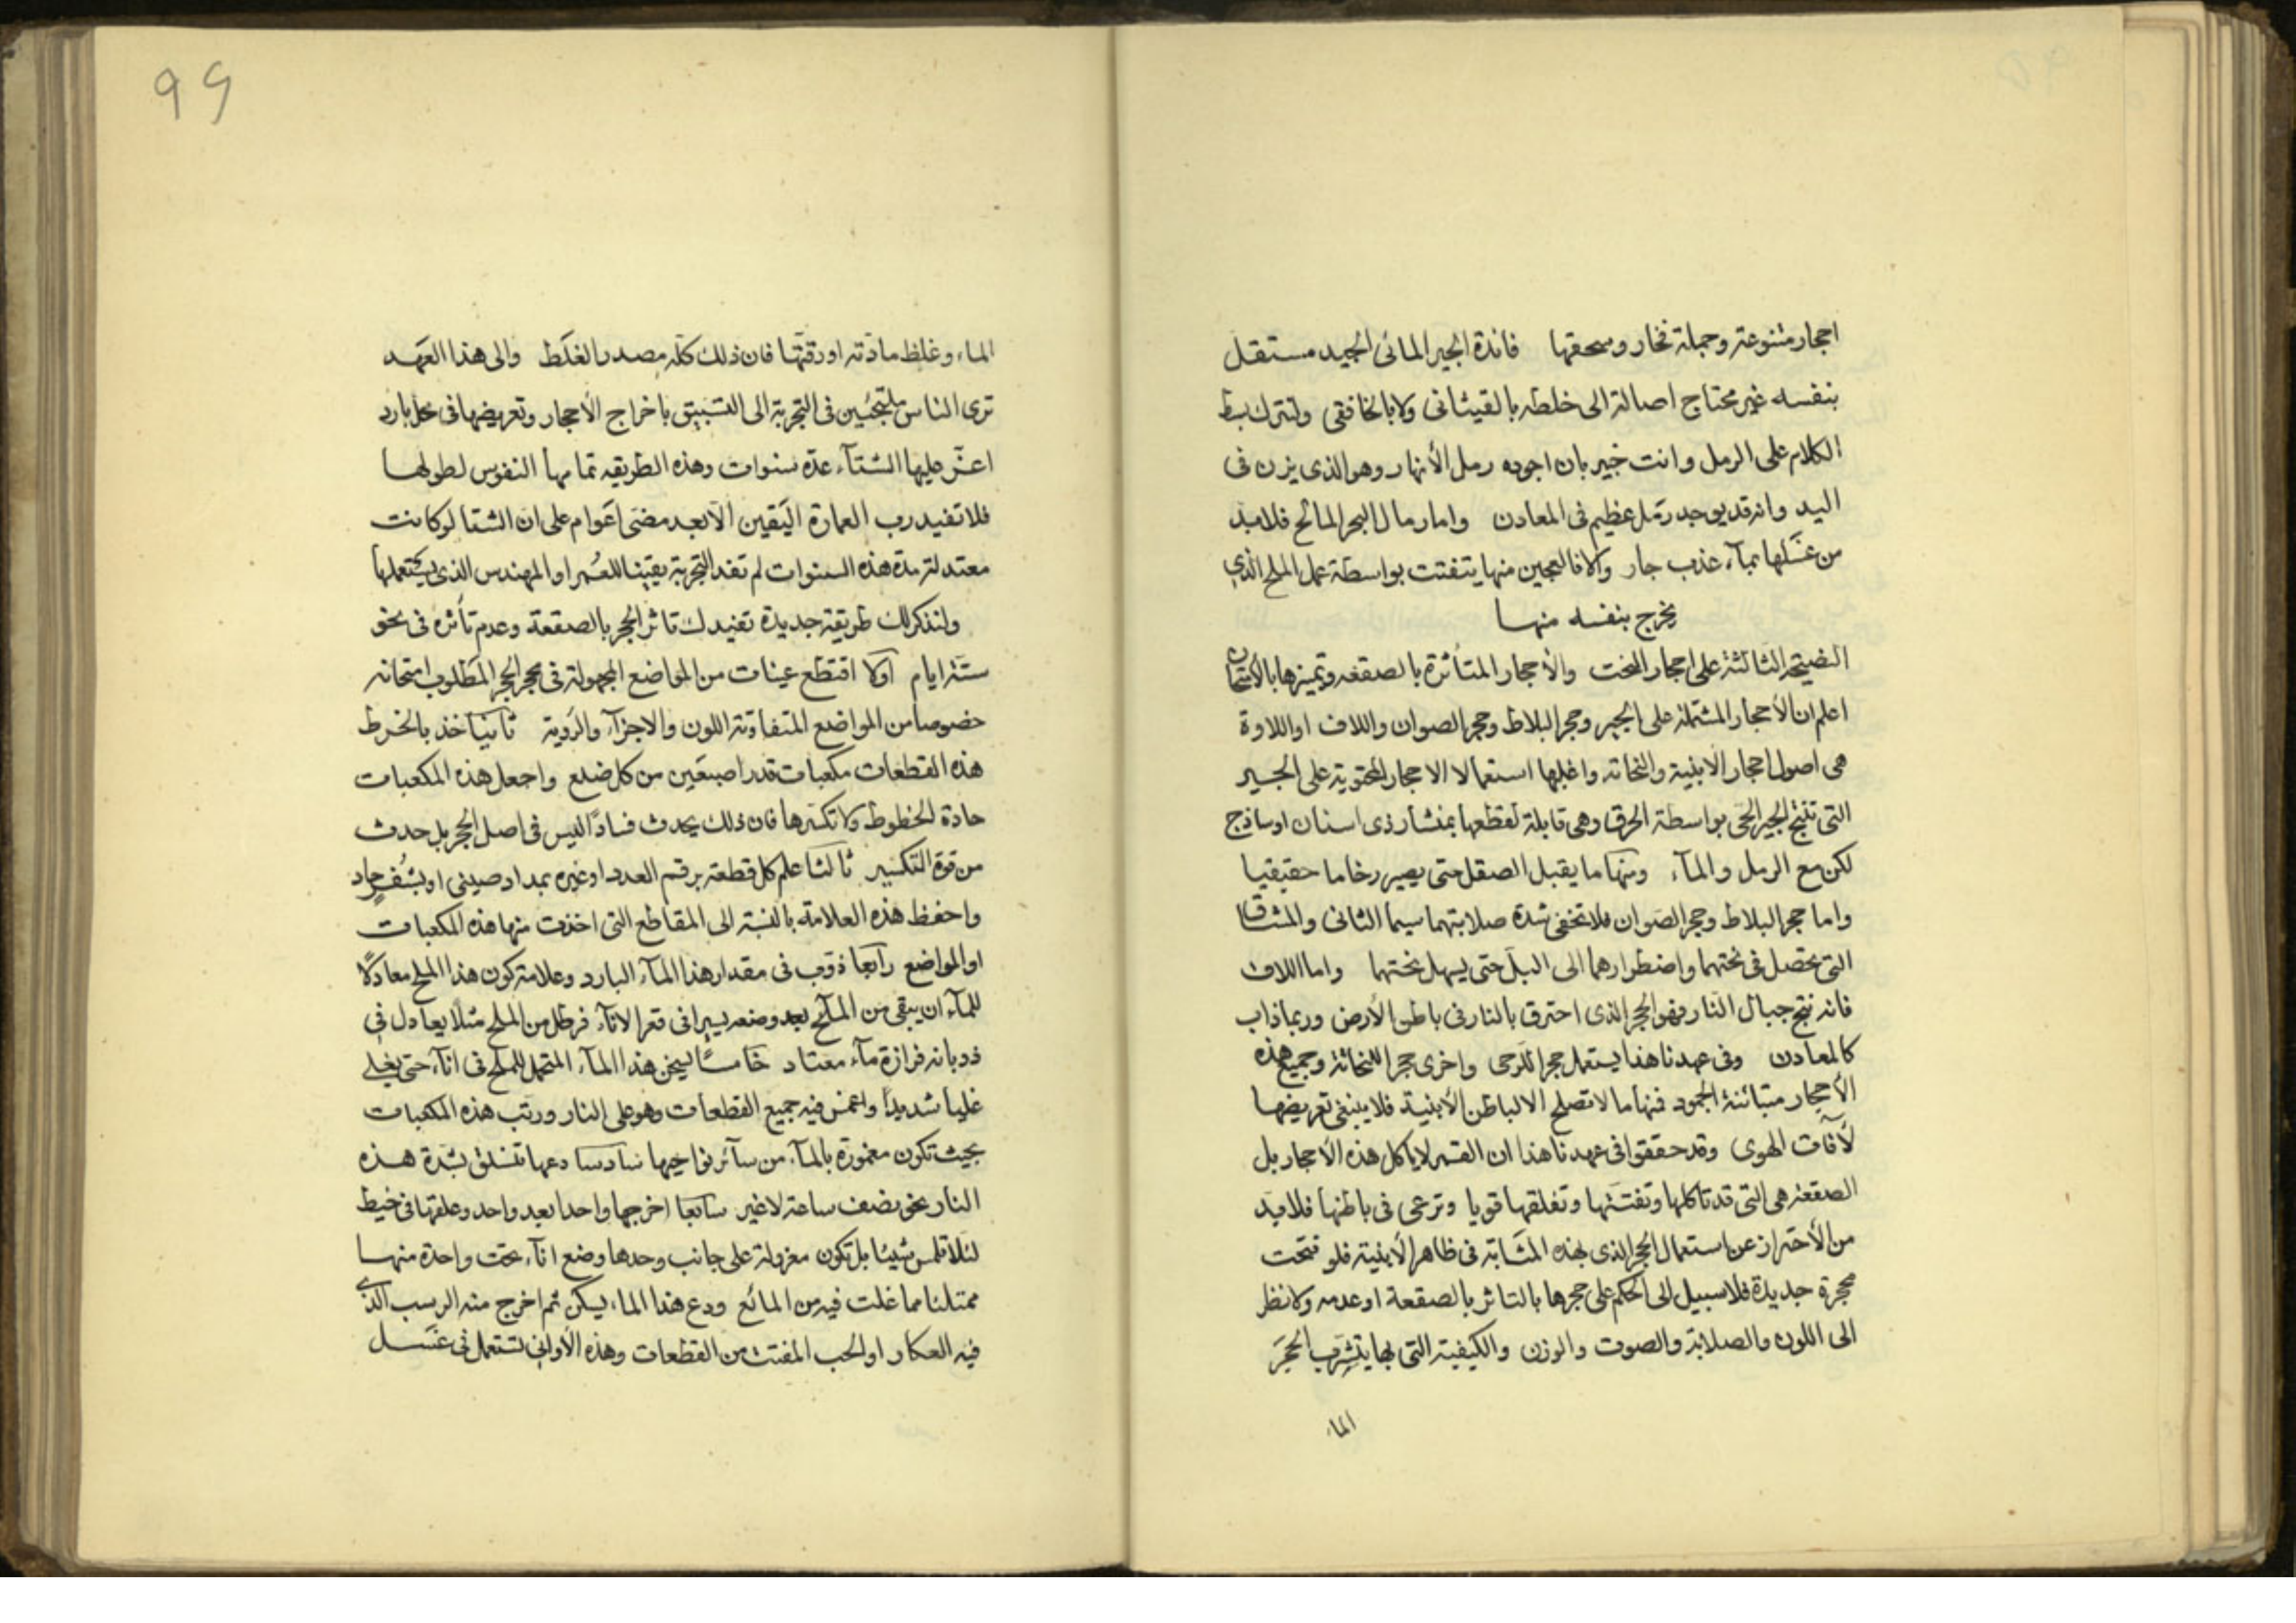 احجار متنوعة وجملة فخار وسحقها فائدة الجير المائى الجيد مستقل
بنفسه غير محتاج اصالة الى خلطه بالقيثانى ولا بالخافقى ولنترك بسط
الكلام على الرمل وانت خبير بان اجوده رمل الأنهار وهو الذى يزن فى
اليد وانه قد يوجد رمل عظيم فى المعادن واما رمال البحر المالح فلا بد
من غسلها بمآء عذب جار والا فالعجين منها يتفتت بواسطة عمل الملح الذى
يخرج بنفسه منها
النصيحة الثالثة على احجار النحت والأحجار المتأثرة بالصقعه وتميزها بالامتحان
اعلم ان الأحجار المشتملة على الجير وحجر البلاط وحجر الصوان واللاف او اللاوة
هى اصول احجار الابنية والنحاتة واغلبها استعمالا الاحجار المحتوية على الجير
التى تنتج الجير الحى بواسطة الحرق وهى قابلة لقطعها بمنشار ذى اسنان او ساذج
لكن مع الرمل والمآء ومنها ما يقبل الصقل حتى يصير رخاما حقيقيا
واما حجر البلاط وحجر الصوان فلا تخفى شدة صلابتهما سيما الثانى والمشاق
التى تحصل فى نحتهما واضطرارهما الى البلّ حتى يسهل نحتهما واما اللاف
فانه نتج جبال النار فهو الحجر الذى احترق بالنار فى باطن الأرض وربما ذاب
كالمعادن وفى عهدنا هذا يستعمل حجرا للرحى واخرى حجرا للنحاتة وجميع هذه
الأحجار متبائنة الجمود فمنها ما لا تصلح الا لباطن الأبنية فلا ينبغى تعريضها
لأفات الهوى وقد حققوا فى عهدنا هذا ان القمر لا ياكل هذه الأحجار بل
الصقعة هى التى قد تاكلها وتفتتها وتفلقها قويا وترعى فى باطنها فلا بد
من الأحتراز عن استعمال الحجر الذى بهذه المثابة فى ظاهر الابنية فلو فتحت
محجرة جديدة فلا سبيل الى الحكم على حجرها بالتاثر بالصقعة او عدمه ولا نظر
الى اللون والصلابة والصوت والوزن والكيفية التى بها يتشرب الحجر
الماء
99
الماء وغلظ مادته او رقتها فان ذلك كله مصدر الغلط والى هذا العهد
ترى الناس ملتجئين فى التجربة الى التسبيق باخراج الأحجار وتعريضها فى محل بارد
عليها الشتآء عدة سنوات وهذه الطريقه النفوس لطولها
فلا تفيد رب العمارة اليقين الا بعد مضى اعوام على ان الشتا لو كانت
معتدلة مدة هذه السنوات لم تفد التجربة يقينا للمعمر او المهندس الذى يستعملها
ولنذكر لك طريقة جديدة تفيدك تاثر الحجر بالصقعة وعدم تأثره فى نحو
ستة ايام اولا اقتطع عينات من المواضع المجهولة فى محجر الحجر المطلوب امتحانه
خصوصا من المواضع المتفاوتة اللون والاجزآء والروية ثانيا خذ بالخرط
هذه القطعات مكعبات قدر اصبعين من كل ضلع واجعل هذه المكعبات
حادة الخطوط ولا تكسرها فان ذلك يحدث فسادًا ليس فى اصل الحجر بل حدث
من قوة التكسير ثالثا علم كل قطعة برقم العدد او غيره بمداد صينى او بشفر حاد
واحفظ هذه العلامة بالنسبة الى المقاطع التى اخذت منها هذه المكعبات
او المواضع رابعا ذوب فى مقدار هذا المآء البارد وعلامة كون هذا الملح معادلًا
للمآء ان يبقى من الملح بعد وضعه يسيرا فى قعر الانآء فرطل من الملح مثلا يعادل فى
ذوبانه قزازة مآء معتاد خامسًا يسخن هذا المآء المتحمل للملح فى انآء حتى يغلى
غليا شديدا واغمس فيه جميع القطعات وهو على النار ورتب هذه المكعبات
بحيث تكون مغمورة بالمآء من سآئر نواحيها سادسا دعها تنسلق بشدة هذه
النار نحو نصف ساعة لا غير سابعا اخرجها واحدا بعد واحد وعلقها فى خيط
لئلا تلمس شيئا بل تكون معزولة على جانب وحدها وضع انآء تحت واحدة منها
ممتلئا مما غلت فيه من المائع ودع هذا الماء يسكن ثم اخرج منه الرسب الذى
فيه العكار او الحب المفتت من القطعات وهذه الأوانى تستعمل فى غسل